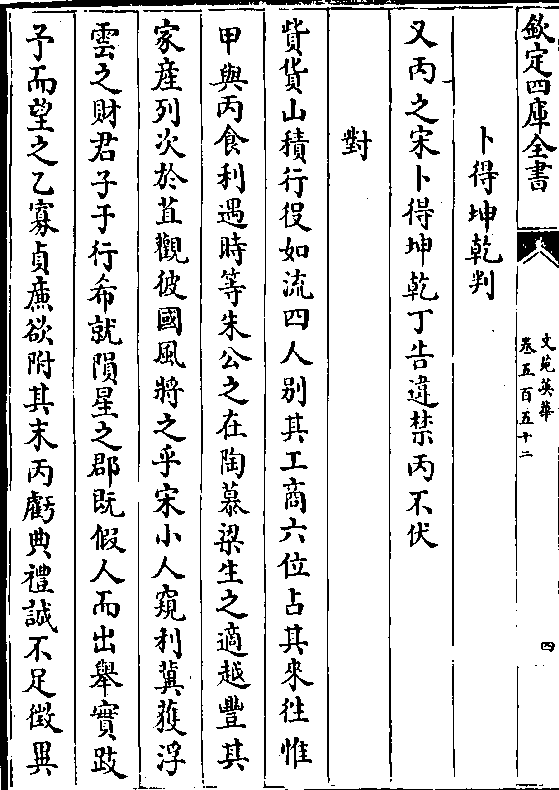 欽定四庫全書
文苑英華
卷五百五十二
四
卜得坤乾判
又丙之宋卜得坤乾丁告違禁丙不伏
對
貲貨山積行役如流四人别其工商六位占其來往惟
甲與丙食利遇時等朱公之在陶慕梁生之適越豐其
家產列次於苴觀彼國風將之乎宋小人窺利冀獲浮
雲之財君子于行希就隕星之郡既假人而出舉實跂
予而望之乙寡貞㢘欲附其末丙虧典禮誠不足徵異